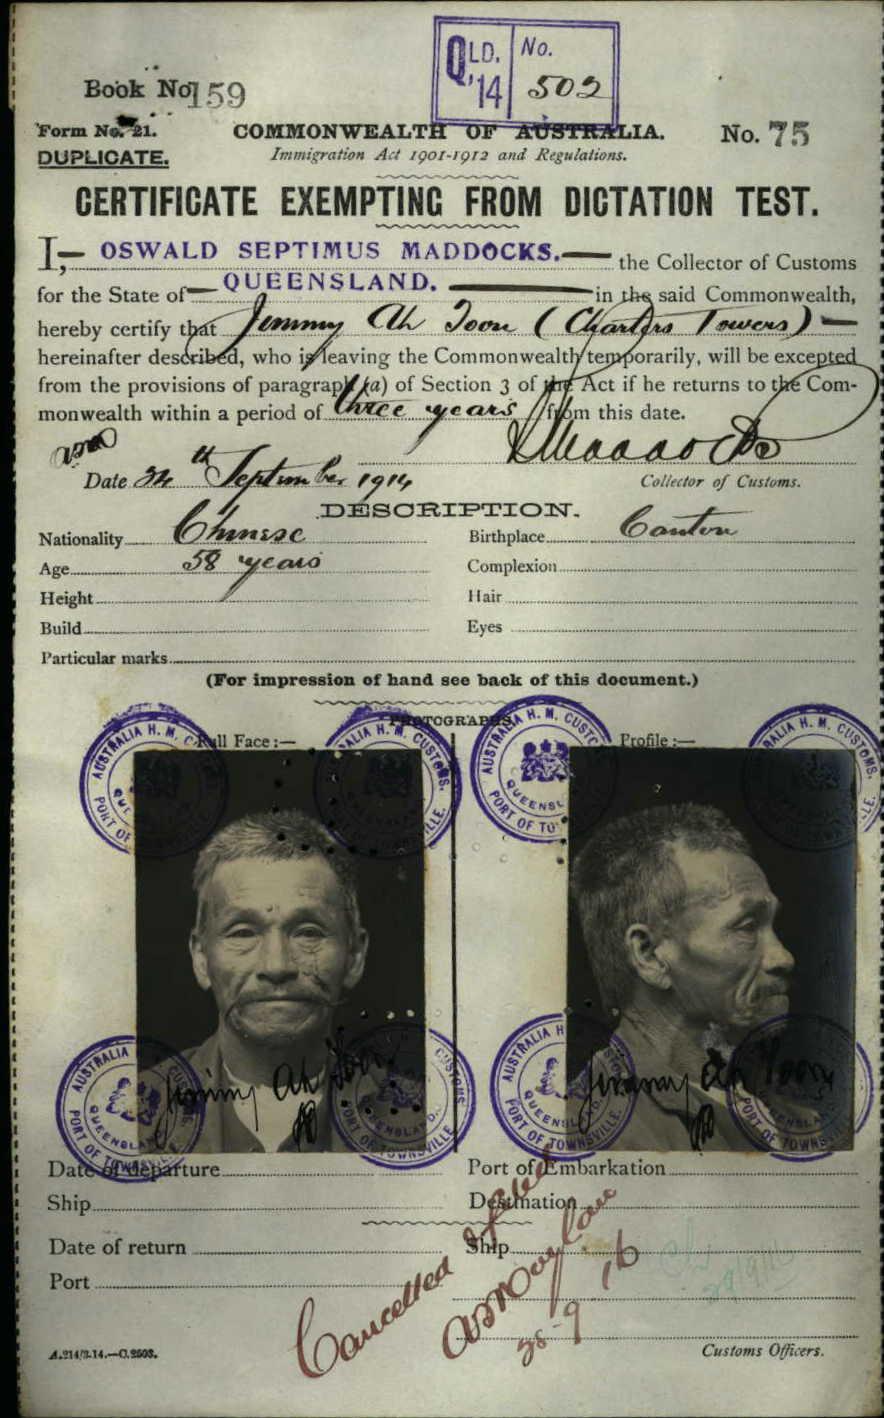 QLD. '14 No. 502
Book No. 159
Form No. 21.
COMMONWEALTH OF AUSTRALIA.
No. 75
DUPLICATE.
Immigration Act 1901-1912 and Regulations.
CERTIFICATE EXEMPTING FROM DICTATION TEST.
I, OSWALD SEPTIMUS MADDOCKS. the Collector of Customs
for the State of QUEENSLAND. in the said Commonwealth,
hereby certify that Jimmy Ah Toon (Charters Towers)
hereinafter described, who is leaving the Commonwealth temporarily, will be excepted
from the provisions of paragraph (a) of Section 3 of the Act if he returns to the Com-
monwealth within a period of three years from this date.
Date 24th September 1914
Maddocks
Collector of Customs.
DESCRIPTION.
Nationality Chinese Birthplace Canton
Age 58 years Complexion
Height Hair
Build Eyes
Particular marks
(For impression of hand see back of this document.)
PHOTOGRAPHS.
Full Face:— Profile:—
AUSTRALIA H. M. CUSTOMS. QUEENSLAND. PORT OF TOWNSVILLE.
Jimmy Ah Toon
Jimmy Ah Toon
Date of departure Port of Embarkation
Ship Destination
Date of return Ship
Port
Cancelled
25-9-16
28/9/16
A.214/3-14.—C.2503.
Customs Officers.